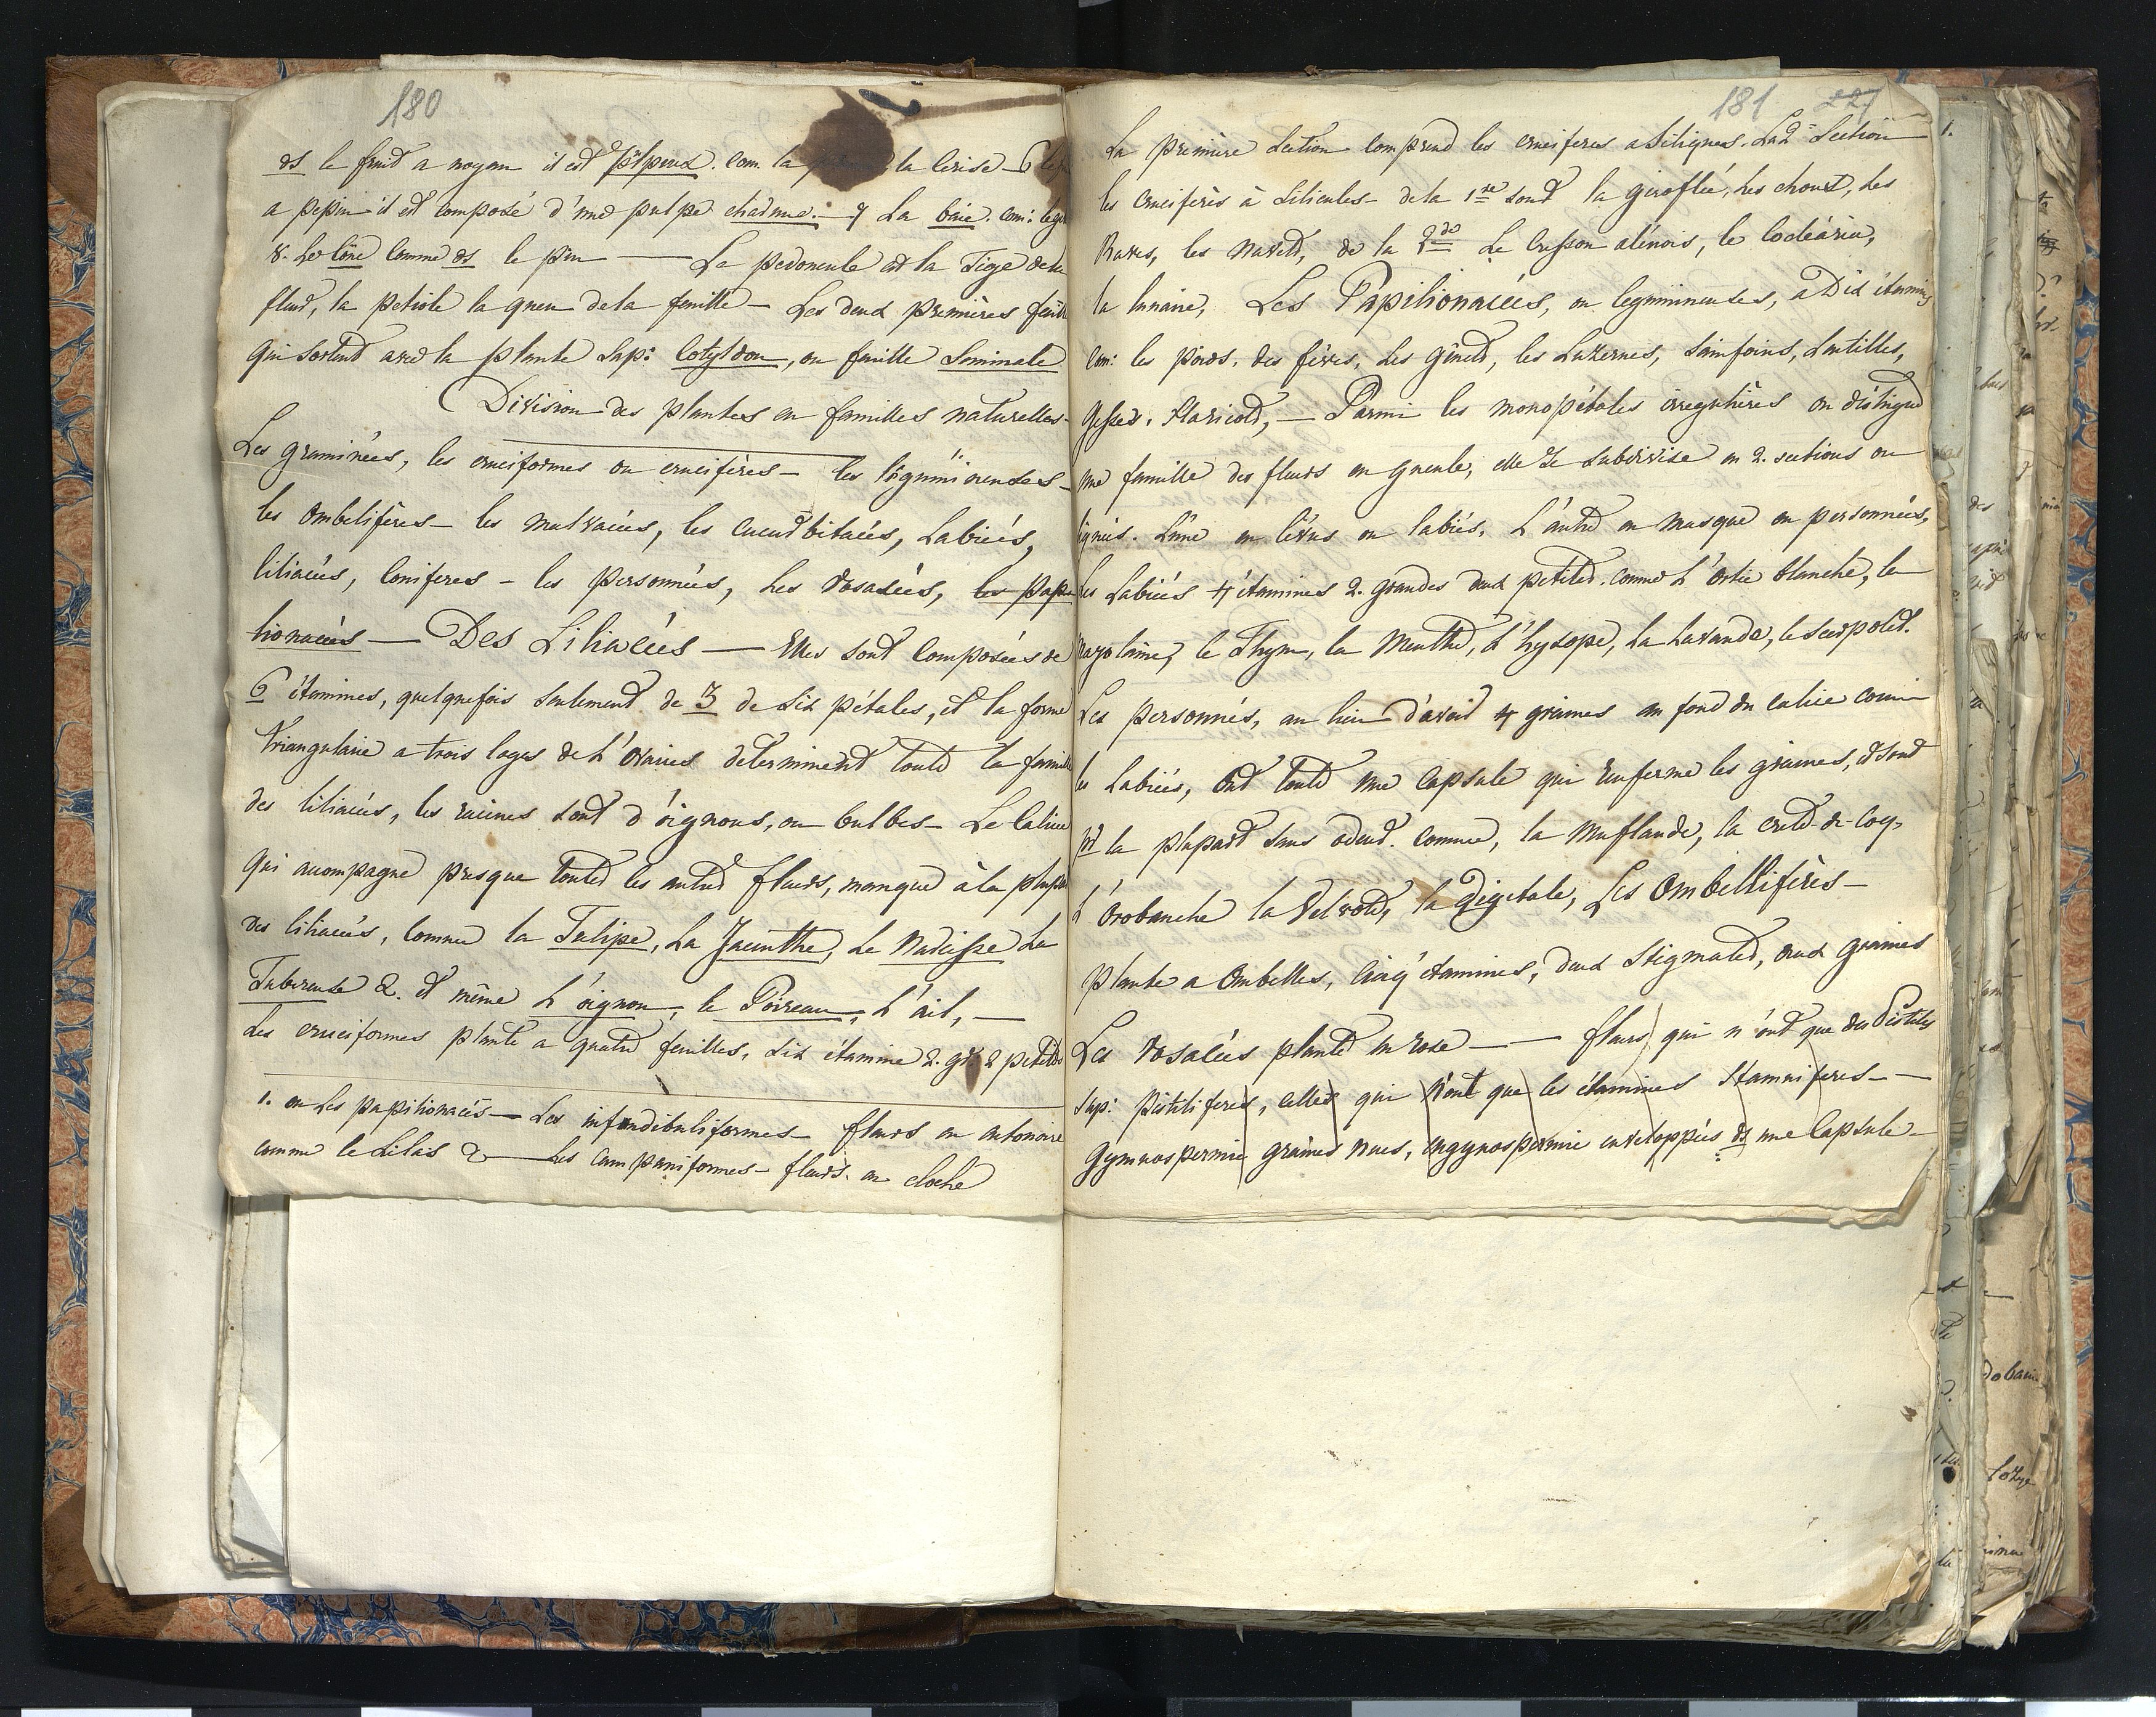 180
ds le fruit a noyau il est pulpeux. com. la la Cerise — 6
a pepin il est composé d'une pulpe charnue. — 7 La baie. com:
8. Le Cône comme ds le pin — Le pedoncule est la Tige de la
fleur, la petiole la queu de la feuille — Les deux premières feuil
qui sortent avec la plante s'ap: Cotyldon, ou feuille Seminale
Division des plantes en familles naturelles —
Les graminées, les cruciformes ou crucifères — les légumineuses —
les Ombelifères — les malvacées, les cucurbitacées, Labiées,
liliacées, Coniferes — les personnées, Les Rosacées, les papi
lionacées — Des Liliacées — Elles sont Composées de
6 étamines, quelquefois seulement de 3 de six pétales, et la forme
triangulaire a trois loges de l'Ovaires determinent toute la famille
des liliacées, les racines sont d'oignons, ou bulbes — Le Calice
qui acompagne presque toutes les autres fleurs, manque à la plupar
des liliacées, comme la Tulipe, La Jacinthe, Le Narcisse La
Tubereuse &. et même L'oignon, le Poireau, L'ail, —
Les cruciformes plante a quatre feuilles, six étamine 2. gr. 2 petites
1. ou Les papilionacés — Les infundibuliformes — fleurs en entonoire
comme le Lilas & — Les Campaniformes — fleurs en cloche
181 227
La première Section comprend les cruciferes a Siliques. La 2e Section
les Crucifères à Silicules — de la 1re sont la giroflée, Les choux, Les
Raves, les navets, de la 2de Le Cresson alénois, le Cocléaria,
la lunaire, Les Papilionacées, ou legumineuses, a Dix étamines
Com: les pois, des fèves, Les Gênets, les Luzernes, Sainfoins, Lentilles,
Gesses, Haricots, — Parmi les monopétales irregulières on distingue
une famille des fleurs en gueule, elle se subdivise en 2. sections ou
lignés. L'une en lèvres ou labiés, L'autre en masque ou personnées,
Les Labiées 4 étamines 2. grandes deux petites. comme L'Ortie blanche, la
marjolaine, le Thym, la Menthe, L'hysope, La Lavande, le Serpolet.
Les personnés, au lieu d'avoir 4 graines au fond du calice comm
les Labiées, Ont toute une Capsule qui renferme les graines, et sont
pr la plupart sans odeur. comme, la Muflaude, la crete-de-Coq,
L'Orobanche la Velvote, la Digitale, Les Ombellifères —
plante a Ombelles, Cinq étamines, deux Stigmates, deux graines
Les rosacées plante en rose — — fleurs qui n'ont que des Pistiles
s'ap: Pistiliferes, celles qui n'ont que les étamines Staminiferes —
Gymnospermie graines nues, engynospermie enveloppées ds une Capsule —